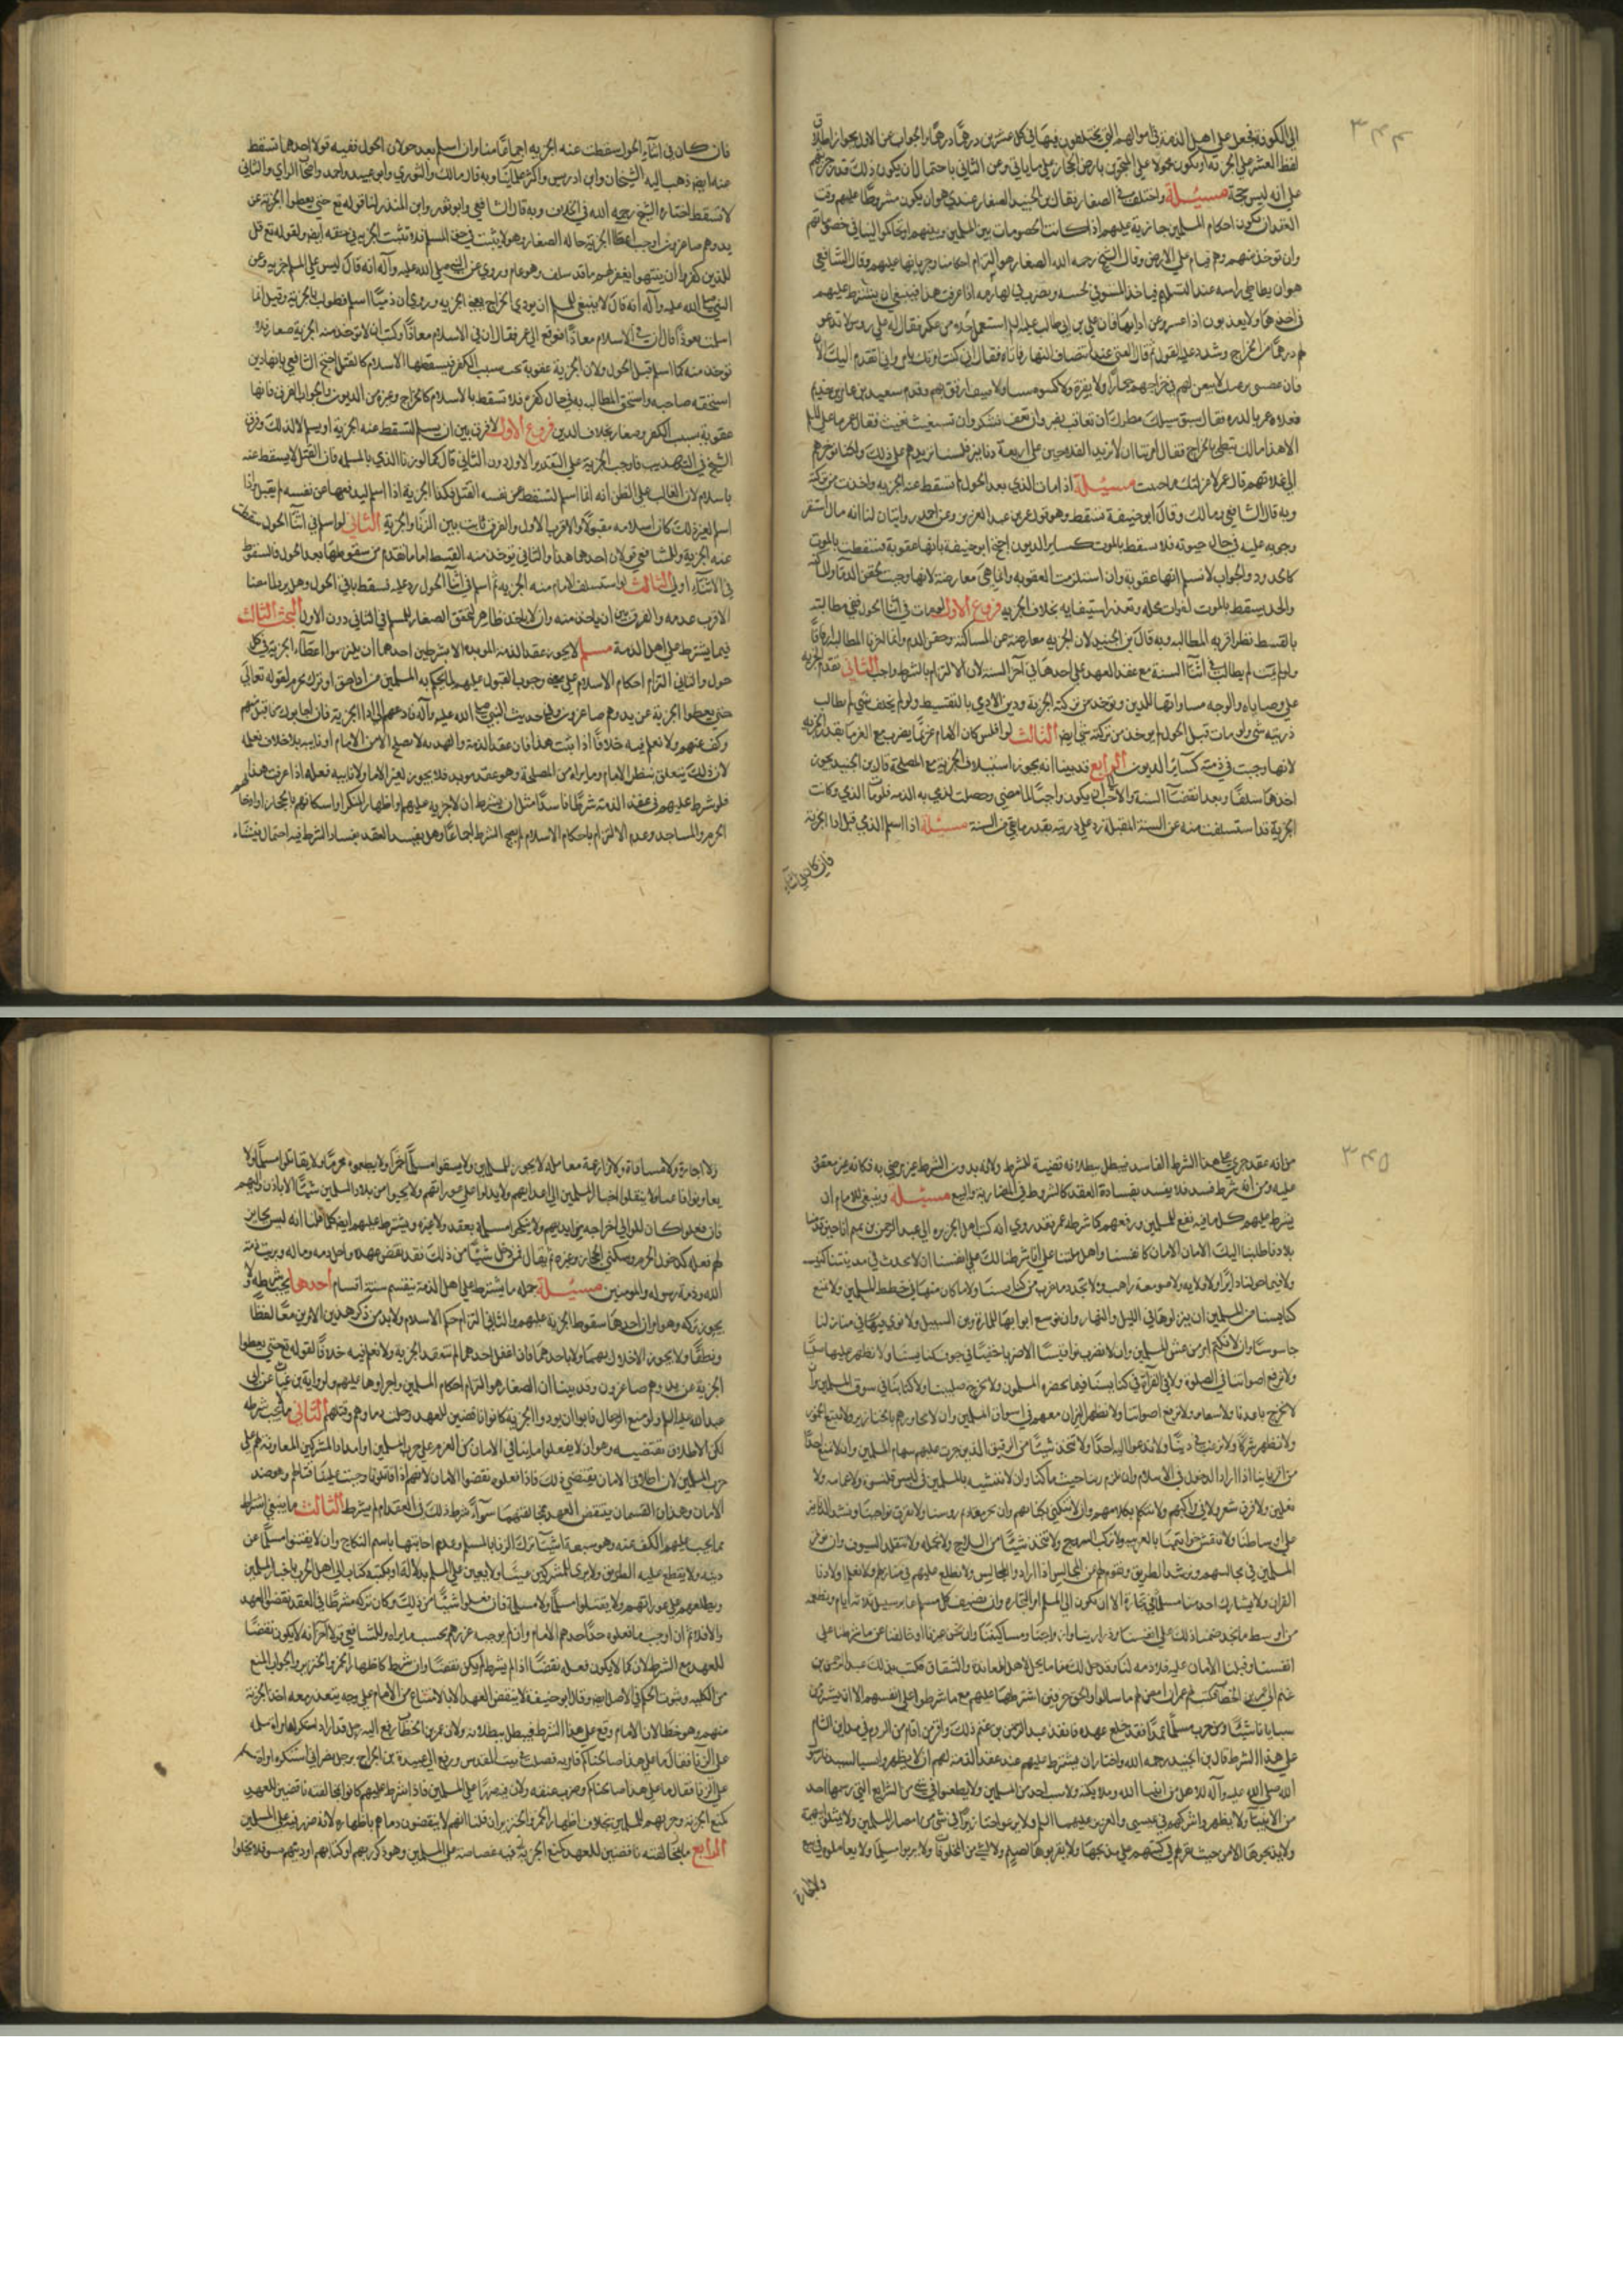 ٣٤٤
الى الكوفة فجعل على اهل الذمة في اموالهم التي يختلفون فيها في كل عشرين درهما درهما والجواب عن الاول بجواز اطلاق
لفظ العشر على الجزية او يكون محمولا على ارض الحجاز على ما ياتي وعن الثاني باحتمال ان يكون ذلك قدر جزيتهم
على انه ليس حجة مسئلة واختلف في الصغار فقال ابن الجنيد الصغار عندي هو ان يكون مشروطا عليهم وقت
العقد ان تكون احكام المسلمين جارية عليهم اذا كانت الخصومات بين المسلمين وبينهم او تحاكموا الينا في خصوماتهم
وان توخذ منهم وهم قيام على الارض وقال الشيخ رحمه الله الصغار هو التزام احكامنا وجريانها عليهم وقال الشافعي
هو ان يطاطي راسه عند التسليم فياخذ المستوفي بلحيته ويضرب في لهازمه اذا عرفت هذا فينبغي ان يشترط عليهم
في اخذها ولا يعذبون اذا عسروا عن ادائها فان علي بن ابي طالب عليه السلم استعمل رجلا من عكبر فقال له على روس لا تدعو
لهم درهما من الخراج وشدد عليه القول ثم قال القني عند انتصاف النهار فاتاه فقال اني كنت امرتك بامر واني اتقدم اليك الان
فان عصيتني لا تبيعن لهم في خراجهم حمارا ولا بقرة ولا كسوة شتاء ولا صيف ارفق بهم وقدم سعيد بن عامر بن حذيم
فعلاه عمر بالدرة فقال سبق سيلك مطرك ان تعاقب نصبر وان تعف نشكر وان تستعتب نعتب فقال عمر ما على المسلم
الا هذا مالك تبطي بالخراج فقال امرتنا ان لا نزيد الفلاحين على اربعة دنانير فلسنا نزيدهم على ذلك ولكنا نوخرهم
الى غلاتهم قال عمر لا عزلتك ما حييت مسئلة اذا مات الذمي بعد الحول لم تسقط عنه الجزية واخذت من تركته
وبه قال الشافعي ومالك وقال ابو حنيفة تسقط وهو قول عمر بن عبد العزيز وعن احمد روايتان لنا انه مال استقر
وجوبه عليه في حال حيوته فلا يسقط بالموت كساير الديون احتج ابو حنيفة بانها عقوبة فتسقط بالموت
كالحدود والجواب لا نسلم انها عقوبة وان استلزمت العقوبة وانما هي معاوضة لانها وجبت لحقن الدماء والمساكنة
والحد يسقط بالموت لفوات محله وتعذر استيفايه بخلاف الجزية فروع الاول لو مات في اثنا الحول ففي مطالبته
بالقسط نظر اقربه المطالبة وبه قال ابن الجنيد لان الجزية معاوضة عن المساكنة وحقن الدم وانما اخرنا المطالبة ارفاقا
ولم يطالب في اثنا السنة مع عقد العهد على اخذها في آخر السنة لان الالتزام بالشرط واجب الثاني تقدم الجزية
على وصاياه والوجه مساواتها للدين ويوخذ من تركته الجزية ودين الادمي بالتقسيط ولو لم يخلف شي لم يطالب
ذريته بشي ولو مات قبل الحول لم يوخذ من تركته شي ايضا الثالث لو افلس كان الامام غريما يضرب مع الغرما بقدر الجزية
لانها وجبت في ذمته كساير الديون الرابع قد بينا انه يجوز استسلاف الجزية مع المصلحة قال ابن الجنيد يجوز
اخذها سلفا وبعد انقضاء السنة والاحب ان يكون واجبا لما مضى وحصلت لذي به الذمة فلو مات الذمي وكانت
الجزية قد استسلفت منه عن السنة المقبلة رد على ذريته بقدر ما بقي من السنة مسئلة اذا اسلم الذمي قبل ادا الجزية
فان كان في اثناء
فان كان في اثناء الحول سقطت عنه الجزية اجماعا منا وان اسلم بعد حولان الحول ففيه قولان احدهما تسقط
عنه ايضا ذهب اليه الشيخان وابن ادريس واكثر علمائنا وبه قال مالك والثوري وابو عبيد واحمد واصحاب الراي والثاني
لا تسقط اختاره الشيخ رحمه الله في الخلاف وبه قال الشافعي وابو ثور وابن المنذر لنا قوله تع حتى يعطوا الجزية عن
يد وهم صاغرون اوجب اعطاء الجزية حالة الصغار وهو لا يثبت في حق المسلم فلا تثبت الجزية في حقه ايضا ولقوله تع قل
للذين كفروا ان ينتهوا يغفر لهم ما قد سلف وهو عام وروي عن النبي صلى الله عليه وآله انه قال ليس على المسلم جزية وعن
النبي صلى الله عليه وآله انه قال لا ينبغي للمسلم ان يودي الخراج يعني الجزية وروي ان ذميا اسلم فطولب بالجزية وقيل انما
اسلمت تعوذا قال ان في الاسلام معاذا فرفع الى عمر فقال ان في الاسلام معاذا وكتب ان لا توخذ منه الجزية صغار فلا
توخذ منه كما لو اسلم قبل الحول ولان الجزية عقوبة تجب بسبب الكفر فيسقطها الاسلام كالقتل احتج الشافعي بانها دين
استحقه صاحبه واستحق المطالبة به في حال كفره فلا تسقط بالاسلام كالخراج وغيره من الديون والجواب الفرق فانها
عقوبة بسبب الكفر وصغار بخلاف الدين فروع الاول لا فرق بين ان يسلم لتسقط عنه الجزية او يسلم لا لذلك وفرق
الشيخ في التهذيب فاوجب الجزية على التقدير الاول دون الثاني قال كما لو زنا الذمي بالمسلمة فان القتل لا يسقط عنه
باسلام لان الغالب على الظن انه انما اسلم لتسقط عن نفسه القتل فكذا الجزية اذا اسلم ليدفعها عن نفسه لم يقبل واذا
اسلم لغير ذلك كان اسلامه مقبولا والاقرب الاول والفرق ثابت بين الزنا والجزية الثاني لو اسلم في اثنا الحول سقطت
عنه الجزية وللشافعي قولان احدهما هذا والثاني يوخذ منه القسط اما ما تقدم من سقوطها بعد الحول فالسقوط
في الاثناء اولى الثالث لو استسلف الامام منه الجزية ثم اسلم في اثنا الحول رد عليه قسط باقي الحول وهل يرد ما مضى
الاقرب عدمه والفرق بين ان ياخذ منه وان لا ياخذ ظاهر لتحقق الصغار للمسلم في الثاني دون الاول البحث الثالث
فيما يشترط على اهل الذمة مسئلة لا يجوز عقد الذمة المؤبدة الا بشرطين احدهما ان يلتزموا اعطاء الجزية في كل
حول والثاني التزام احكام الاسلام على معنى وجوب القبول عليهم لما يحكم به المسلمون من اداء حق او ترك محرم لقوله تعالى
حتى يعطوا الجزية عن يد وهم صاغرون وفي حديث النبي صلى الله عليه وآله فادعهم الى ادا الجزية فان اجابوك فاقبل منهم
وكف عنهم ولا نعلم فيه خلافا اذا ثبت هذا فان عقد الذمة والهدنة لا يصح الا من الامام او نايبه بلا خلاف نعلمه
لان ذلك يتعلق بنظر الامام وما يراه من المصلحة وهو عقد موبد فلا يجوز لغير الامام ولا نايبه فعله اذا عرفت هذا
فلو شرط عليهم في عقد الذمة شرطا فاسدا مثل ان يشترط ان لا جزية عليهم او اظهار المنكر او اسكانهم بالحجاز او ادخالهم
الحرم والمساجد وعدم الالتزام باحكام الاسلام لم يصح الشرط اجماعا وهل يفسد العقد بفساد الشرط فيه احتمال ينشاء
٣٤٥
من انه عقد جرى على هذا الشرط الفاسد فيبطل ببطلانه قضية للشرط ولانه بدون الشرط غير مرضي به فكانه غير معقود
عليه ومن انه شرط فسد فلا يفسد بفساده العقد كالشروط في المضاربة والبيع مسئلة وينبغي للامام ان
يشرط عليهم كل ما فيه نفع للمسلمين ورفعهم كما شرطه عمر فقد روي انه كتب اهل الجزيرة الى عبد الرحمن بن غنم انا حين قدمنا
بلادنا طلبنا اليك الامان لانفسنا واهل ملتنا على انا شرطنا لك على انفسنا ان لا نحدث في مدينتنا كنيسة
ولا فيما حولنا ديرا ولا قلاية ولا صومعة راهب ولا نجدد ما خرب من كنايسنا ولا ما كان منها في خطط المسلمين ولا نمنع
كنايسنا من المسلمين ان ينزلوها في الليل والنهار وان نوسع ابوابها للمارة وابن السبيل ولا نؤوي فيها ولا في منازلنا
جاسوسا وان لا نكتم امر من غش المسلمين وان لا نضرب نواقيسنا الا ضربا خفيا في جوف كنايسنا ولا نظهر عليها صليبا
ولا نرفع اصواتنا في الصلوة ولا في القرآة في كنايسنا فيما يحضره المسلمون ولا نخرج صليبنا ولا كتابنا في سوق المسلمين وان
لا نخرج باعوثا ولا شعانين ولا نرفع اصواتنا ولا نظهر النيران معهم في اسواق المسلمين وان لا نجاورهم بالخنازير ولا نبيع الخمور
ولا نظهر شركا ولا نرغب في ديننا ولا ندعو اليه احدا ولا نتخذ شيئا من الرقيق الذين جرت عليهم سهام المسلمين وان لا نمنع احدا
من اقربائنا اذا اراد الدخول في الاسلام وان نلزم زينا حيث ما كنا وان لا نتشبه بالمسلمين في لبس قلنسوة ولا عمامة ولا
نعلين ولا فرق شعر ولا في مراكبهم ولا نتكلم بكلامهم وان لا نتكنى بكناهم وان نجز مقادم روسنا ولا نفرق نواصينا ونشد الزنانير
على اوساطنا ولا ننقش خواتيمنا بالعربية ولا نركب السروج ولا نتخذ شيئا من السلاح ولا نحمله ولا نتقلد السيوف وان نوقر
المسلمين في مجالسهم ونرشد الطريق ونقوم لهم عن المجالس اذا ارادوا المجالس ولا نطلع عليهم في منازلهم ولا نعلم اولادنا
القران ولا يشارك احد منا مسلما في تجارة الا ان يكون الى المسلم امر التجارة وان نضيف كل مسلم عابر سبيل ثلاثة ايام ونطعمه
من اوسط ما نجد ضمنا ذلك على انفسنا وذرارينا وازواجنا ومساكيننا وان نحن غيرنا او خالفنا عما شرطنا على
انفسنا وقبلنا الامان عليه فلا ذمة لنا وقد حل لك منا ما يحل لاهل المعاندة والشقاق فكتب بذلك عبد الرحمن بن
غنم الى عمر بن الخطاب فكتب لهم عمر ان امض لهم ما سالوا والحق حرفين اشترطهما عليهم مع ما شرطوا على انفسهم الا يشتروا من
سبايانا شيئا ومن ضرب مسلما عمدا فقد خلع عهده فانفذ عبد الرحمن بن غنم ذلك واقر من اقام من الروم في مداين الشام
على هذا الشرط قال ابن الجنيد رحمه الله واختار ان يشترط عليهم عند عقد الذمة لهم ان لا يظهروا سبا لسيدنا رسول
الله صلى الله عليه وآله ولا احد من انبياء الله وملائكته ولا سب احد من المسلمين ولا يطعنوا في شي من الشرايع التي رسمها احد
من الانبياء ولا يظهروا شركهم في عيسى والعزير عليهما السلم ولا يرعوا خنازيرا في شي من امصار المسلمين ولا يمثلوا ببهيمة
ولا يذبحوها الا من حيث نص لهم في كتبهم على مذبحها ولا يقربوها لصنم ولا لشيء من المخلوقات ولا يربوا مسلما ولا يعاملوه في بيع
ولا اجارة
ولا اجارة ولا مساقاة ولا مزارعة معاملة لا يجوز للمسلمين ولا يسقوا مسلما خمرا ولا يطعموه محرما ولا يقاتلوا مسلما ولا
يعاونوا باغيا ولا ينقلوا اخبار المسلمين الى اعدائهم ولا يدلوا على عوراتهم ولا يحيوا من بلاد المسلمين شيئا الا باذن واليهم
فان فعلوا كان للوالي اخراجه من ايديهم ولا ينكحوا مسلمة بعقد ولا غيره ويشترط عليهم ايضا كل ما قلنا انه ليس بجايز
لهم فعله كدخول الحرم وسكنى الحجاز وغيره ثم يقال فمن فعل شيئا من ذلك فقد نقض عهده واحل دمه وماله وبريت منه
الله وذمة رسوله والمومنين مسئلة جملة ما يشترط على اهل الذمة ينقسم ستة اقسام احدها يجب شرطه ولا
يجوز تركه وهو امران احدهما شروط الجزية عليهم والثاني التزام حكم الاسلام ولا بد من ذكر هذين الامرين معا لفظا
ونطقا ولا يجوز الاخلال بهما ولا باحدهما فان اغفل احدهما لم تنعقد الجزية ولا نعلم فيه خلافا لقوله تع حتى يعطوا
الجزية عن يد وهم صاغرون وقد بينا ان الصغار هو التزام احكام المسلمين واجراؤها عليهم ولرواية بن غياث عن ابي
عبد الله عليه السلم ولو منع الرجال فابوا ان يودوا الجزية كانوا ناقضين للعهد وحلت دماوهم وقتلهم الثاني ما لا يجب شرطه
لكن الاطلاق يقتضيه وهو ان لا يفعلوا ما ينافي الامان من العزم على حرب المسلمين او امداد المشركين بالمعاونة لهم على
حرب المسلمين لان اطلاق الامان يقتضي ذلك فاذا فعلوه نقضوا الامان لانهم اذا قاتلونا وجب علينا قتالهم وهو ضد
الامان وهذان القسمان ينتقض العهد بمخالفتهما سواء شرط ذلك في العقد او لم يشرط الثالث ما ينبغي اشتراطه
مما يجب عليهم الكف عنه وهو سبعة اشياء ترك الزنا بالمسلمة وعدم اصابتها باسم النكاح وان لا يفتنوا مسلما عن
دينه ولا يقطع عليه الطريق ولا يووي للمشركين عينا ولا يعين على المسلمين بدلالة او بكتبة كتاب الى اهل الحرب باخبار المسلمين
ويطلعهم على عوراتهم ولا يقتلوا مسلما ولا مسلمة فان فعلوا شيئا من ذلك وكان تركه مشترطا في العقد نقضوا العهد
والا فلا ثم ان اوجب ما فعلوه حدا حدهم الامام وان لم يوجبه عزرهم بحسب ما يراه وللشافعي قول آخر انه لا يكون نقضا
للعهد مع الشرط لان كما لا يكون فعله نقضا اذا لم يشرط لم يكن نقضا وان شرط كاظهار الخمر والخنزير والجواب المنع
من الكلية وثبوت الحكم في الاصل ايضا وقال ابو حنيفة لا ينتقض العهد الا بالامتناع من الامام على وجه يتعذر معه اخذ الجزية
منهم وهو خطا لان الامام وقع على هذا الشرط فيبطل ببطلانه ولان عمر بن الخطاب رفع اليه رجل قد اراد استكراه امراة مسلمة
على الزنا فقال ما على هذا صالحناكم فامر به فصلب في بيت المقدس ورفع الى ابي عبيدة بن الجراح برجل نصراني استكره امراة مسلمة
على الزنا فقال ما على هذا صالحناكم وضرب عنقه ولان فيه ضررا على المسلمين فاذا شرط عليهم كانوا بمخالفته ناقضين للعهد
كمنع الجزية وحربهم للمسلمين بخلاف اظهار الخمر والخنزير ان قلنا انهم لا ينقضون ذمامهم باظهاره لانه لا ضرر فيه على المسلمين
الرابع ما بمخالفته ناقضين للعهد كمنع الجزية فيه غضاضة على المسلمين وهو ذكر ربهم او كتابهم او دينهم بسوء فلا يخلوا